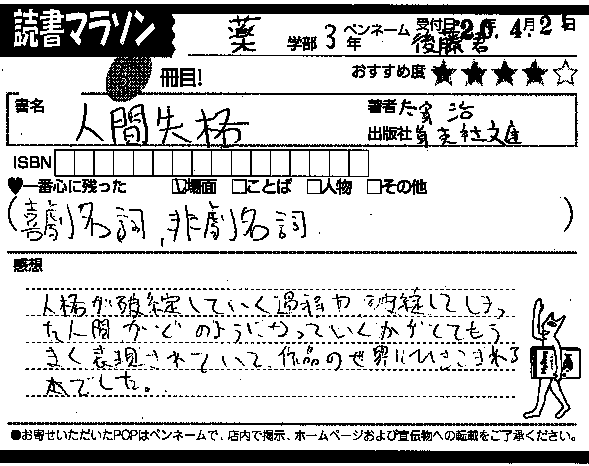 読書マラソン
薬 学部 3年 ペンネーム 後藤君 受付日 '20年4月2日
冊目! おすすめ度 ★★★★☆
書名 人間失格 著者 太宰 治
出版社 集英社文庫
ISBN
♥一番心に残った ☑場面 □ことば □人物 □その他
(喜劇名詞、非劇名詞)
感想
人格が破綻していく過程や 破綻してしまっ
た人間がどのようになっていくかがとてもう
まく表現されていて、作品の世界にひきこまれる
本でした。
●お寄せいただいたPOPはペンネームで、店内で掲示、ホームページおよび宣伝物への転載をご了承ください。